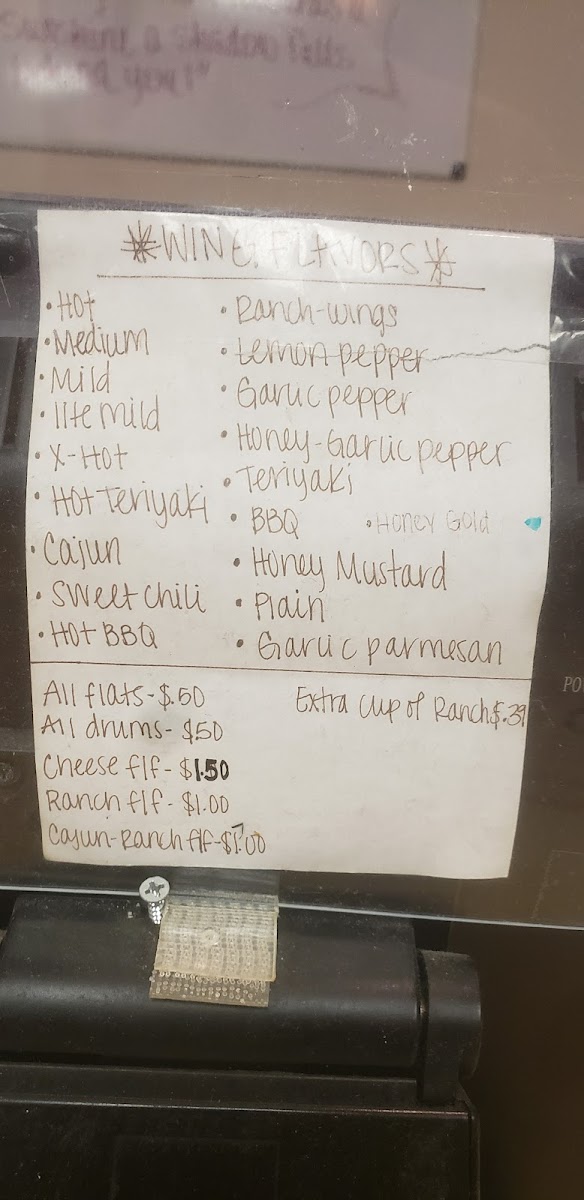 a shadow falls
you!"
*WING FLAVORS*
• Hot
• Medium
• Mild
• lite mild
• X-Hot
• Hot Teriyaki
• Cajun
• Sweet chili
• Hot BBQ
• Ranch-wings
• Lemon pepper
• Garlic pepper
• Honey-Garlic pepper
• Teriyaki
• BBQ
• Honey Gold
• Honey Mustard
• Plain
• Garlic parmesan
All flats-$.50
All drums-$.50
Cheese f/f-$1.50
Ranch f/f-$1.00
Cajun-Ranch f/f-$1.00
Extra cup of Ranch $.39
PO